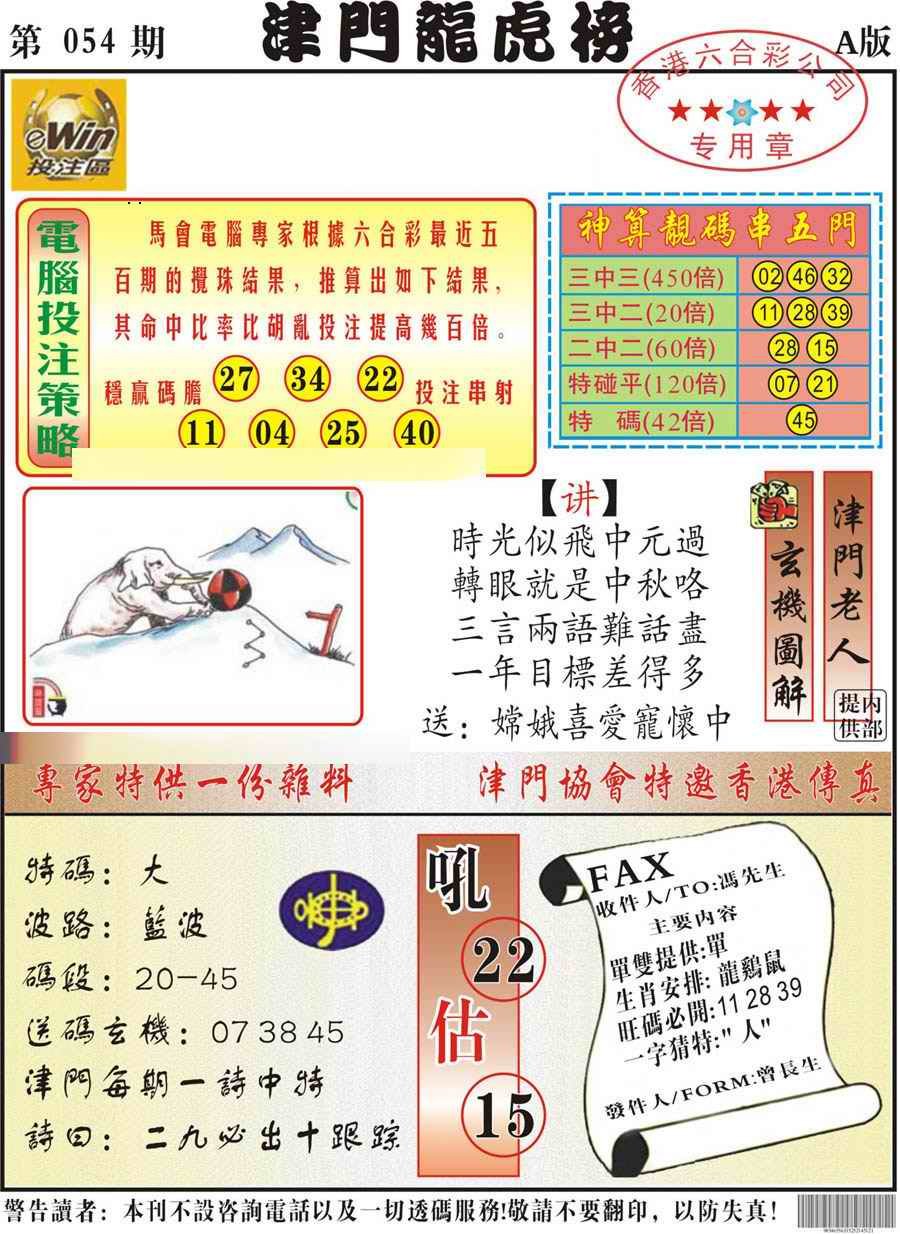 第 054 期
津門龍虎榜
A版
香港六合彩公司
专用章
eWin
投注區
電腦投注策略
馬會電腦專家根據六合彩最近五
百期的攪珠結果，推算出如下結果，
其命中比率比胡亂投注提高幾百倍。
穩贏碼膽 27 34 22 投注串射
11 04 25 40
神算靚碼串五門
三中三(450倍) 02 46 32
三中二(20倍) 11 28 39
二中二(60倍) 28 15
特碰平(120倍) 07 21
特 碼(42倍) 45
【讲】
時光似飛中元過
轉眼就是中秋咯
三言兩語難話盡
一年目標差得多
送：嫦娥喜愛寵懷中
玄機圖解
津門老人
内部
提供
專家特供一份雜料
津門協會特邀香港傳真
特碼：大
波路：藍波
碼段：20-45
送碼玄機：07 38 45
津門每期一詩中特
詩曰：二九必出十跟踪
吼
22
估
15
FAX
收件人/TO:馮先生
主要內容
單雙提供:單
生肖安排: 龍鷄鼠
旺碼必開:11 28 39
一字猜特:"人"
發件人/FORM:曾長生
警告讀者：本刊不設咨詢電話以及一切透碼服務!敬請不要翻印，以防失真！